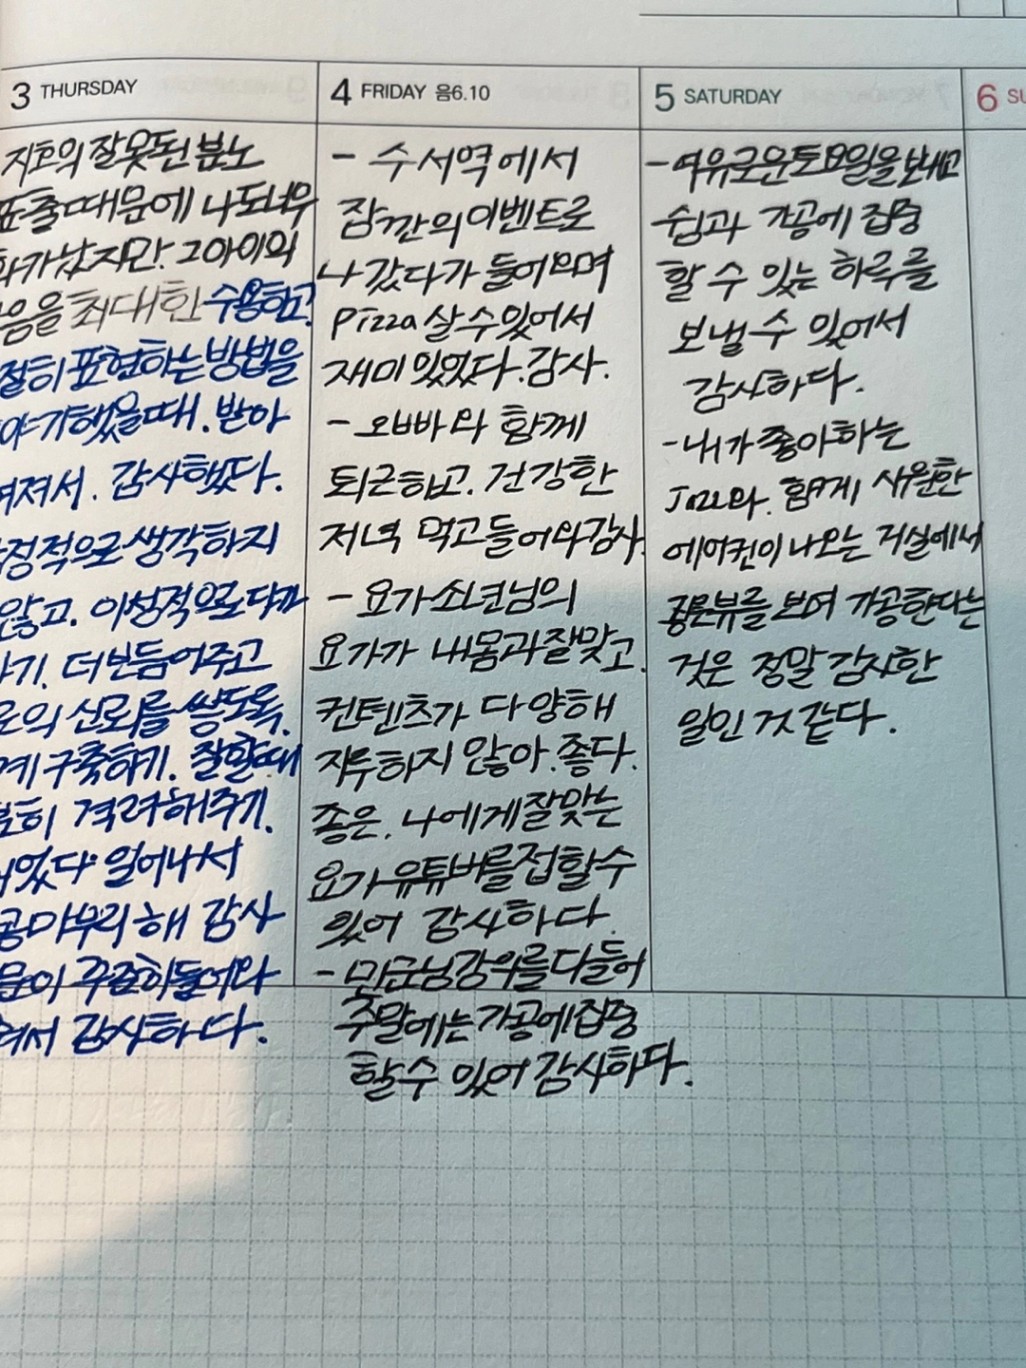 3 THURSDAY
지호의 잘못된 분노
표출때문에 나도너무
화가났지만. 그아이의
음을 최대한 수용하고.
절히 표현하는 방법을
야기했을때. 받아
여져서. 감사했다.
정적으로 생각하지
않고. 이성적으로
기. 더보듬어주고
로의 신뢰를 쌓도록.
계 구축하기. 잘할때
히 격려해주기.
었다 일어나서
공마무리해 감사
문이 꾸준히들어와
려서 감사하다.
4 FRIDAY 음6.10
- 수서역에서
잠깐의이벤트로
나갔다가 들어오며
Pizza 살수있어서
재미있었다. 감사.
- 오빠와 함께
퇴근하고. 건강한
저녁 먹고들어와감사.
- 요가소년님의
요가가 내몸과잘맞고.
컨텐츠가 다양해
지루하지 않아. 좋다.
좋은. 나에게잘맞는
요가유튜버를접할수
있어 감사하다.
- 민군님강의를다들어
주말에는가공에집중
할수 있어 감사하다.
5 SATURDAY
- 여유로운토요일을보내고
쉼과 가공에 집중
할 수 있는 하루를
보낼수 있어서
감사하다.
- 내가좋아하는
Jazz와. 함께 시원한
에어컨이나오는 거실에서
공원뷰를 보며 가공한다는
것은 정말 감사한
일인것같다.
6 SU